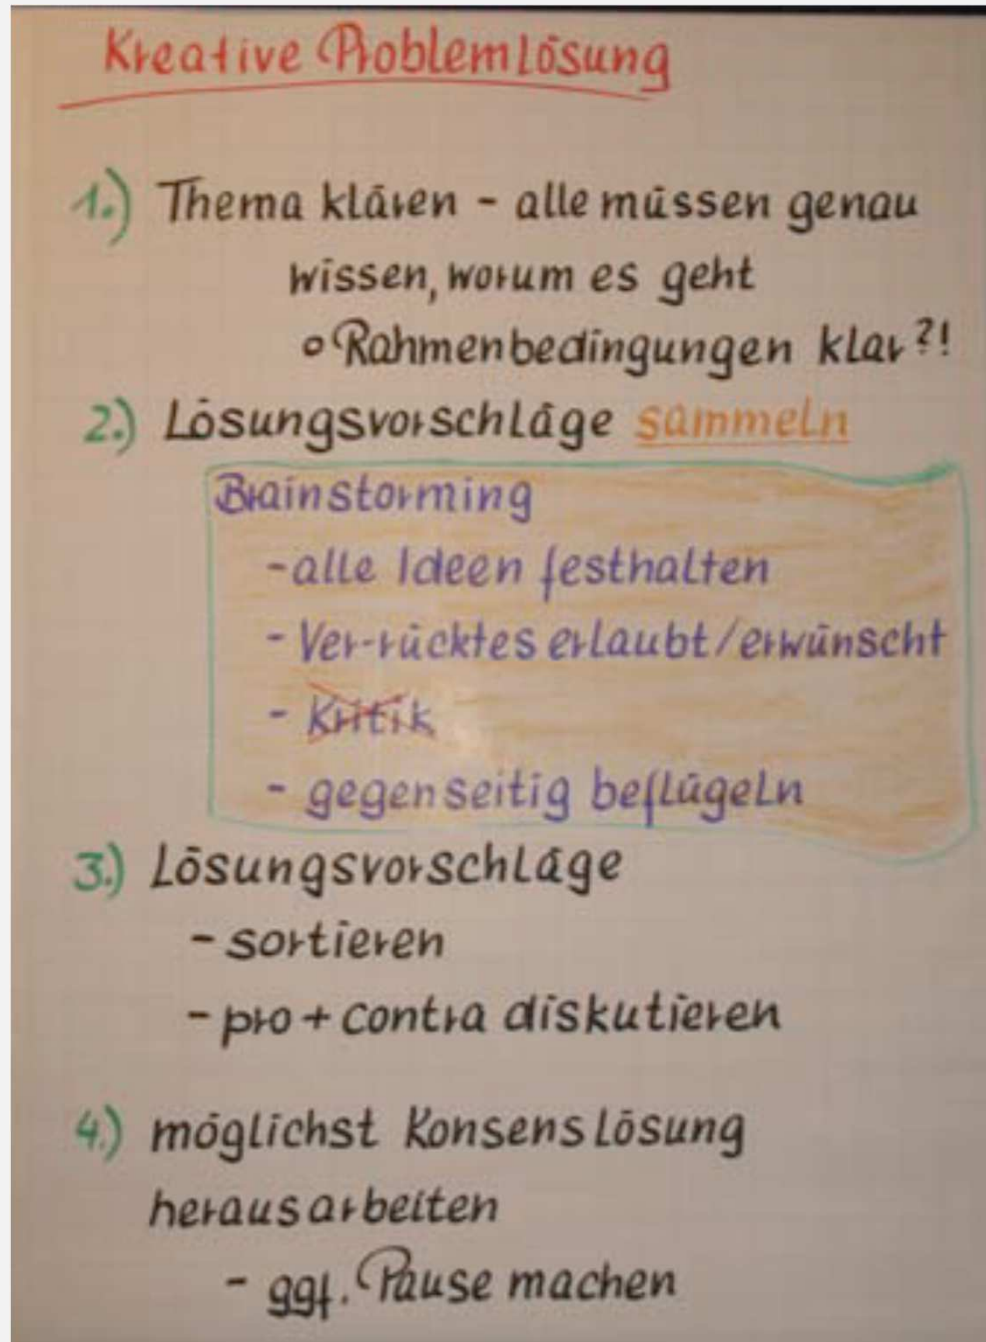 Kreative Problemlösung
1.) Thema klären - alle müssen genau
wissen, worum es geht
o Rahmenbedingungen klar?!
2.) Lösungsvorschläge sammeln
Brainstorming
- alle Ideen festhalten
- Ver-rücktes erlaubt/erwünscht
- Kritik
- gegenseitig beflügeln
3.) Lösungsvorschläge
- sortieren
- pro + contra diskutieren
4.) möglichst Konsenslösung
herausarbeiten
- ggf. Pause machen